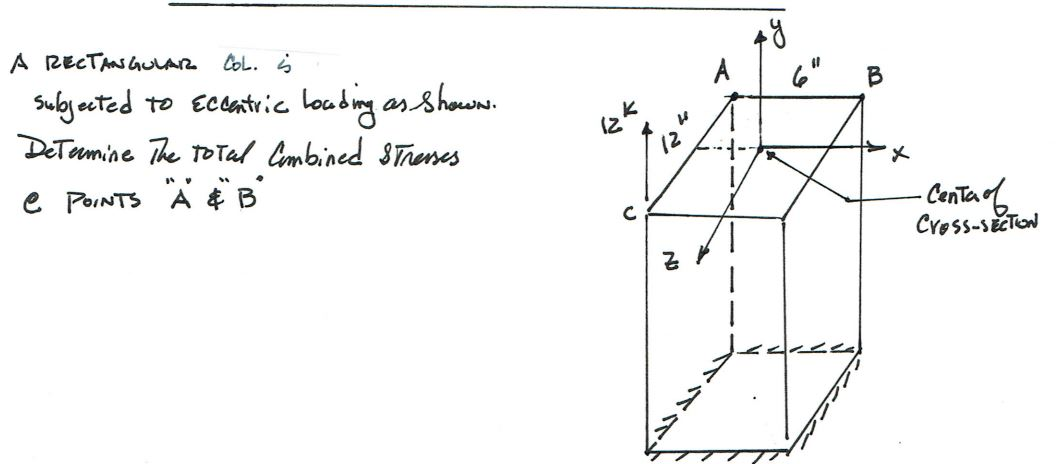 A RECTANGULAR COL. is
subjected to Eccentric loading as shown.
Determine The TOTAL Combined STresses
@ POINTS "A" & "B"
y
A
6"
B
12K
12"
x
C
Center of
Cross-section
Z